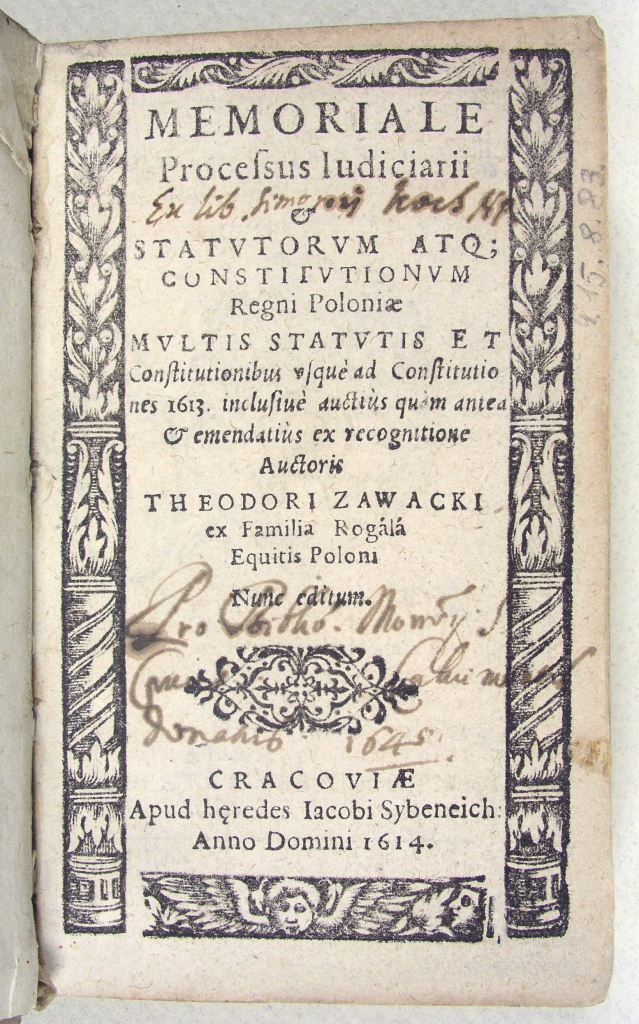 MEMORIALE
Proceſsus Iudiciarii
Ex lib.
&
STATVTORVM ATQ;
CONSTITVTIONVM
Regni Poloniæ
MVLTIS STATVTIS ET
Conſtitutionibus vſquè ad Conſtitutio
nes 1613. incluſiuè auctiùs quàm antea
& emendatiùs ex recognitione
Auctoris
THEODORI ZAWACKI
ex Familia Rogálá
Equitis Poloni
Nunc editum.
Pro
1645.
CRACOVIÆ
Apud hęredes Iacobi Sybeneich:
Anno Domini 1614.
15.8.23.